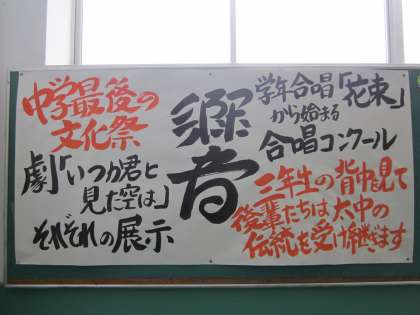 中学最後の
文化祭
劇「いつか君と
見た空は」
それぞれの展示
響
学年合唱「花束」
から始まる
合唱コンクール
三年生の背中を見て
後輩たちは大中の
伝統を受け継ぎます